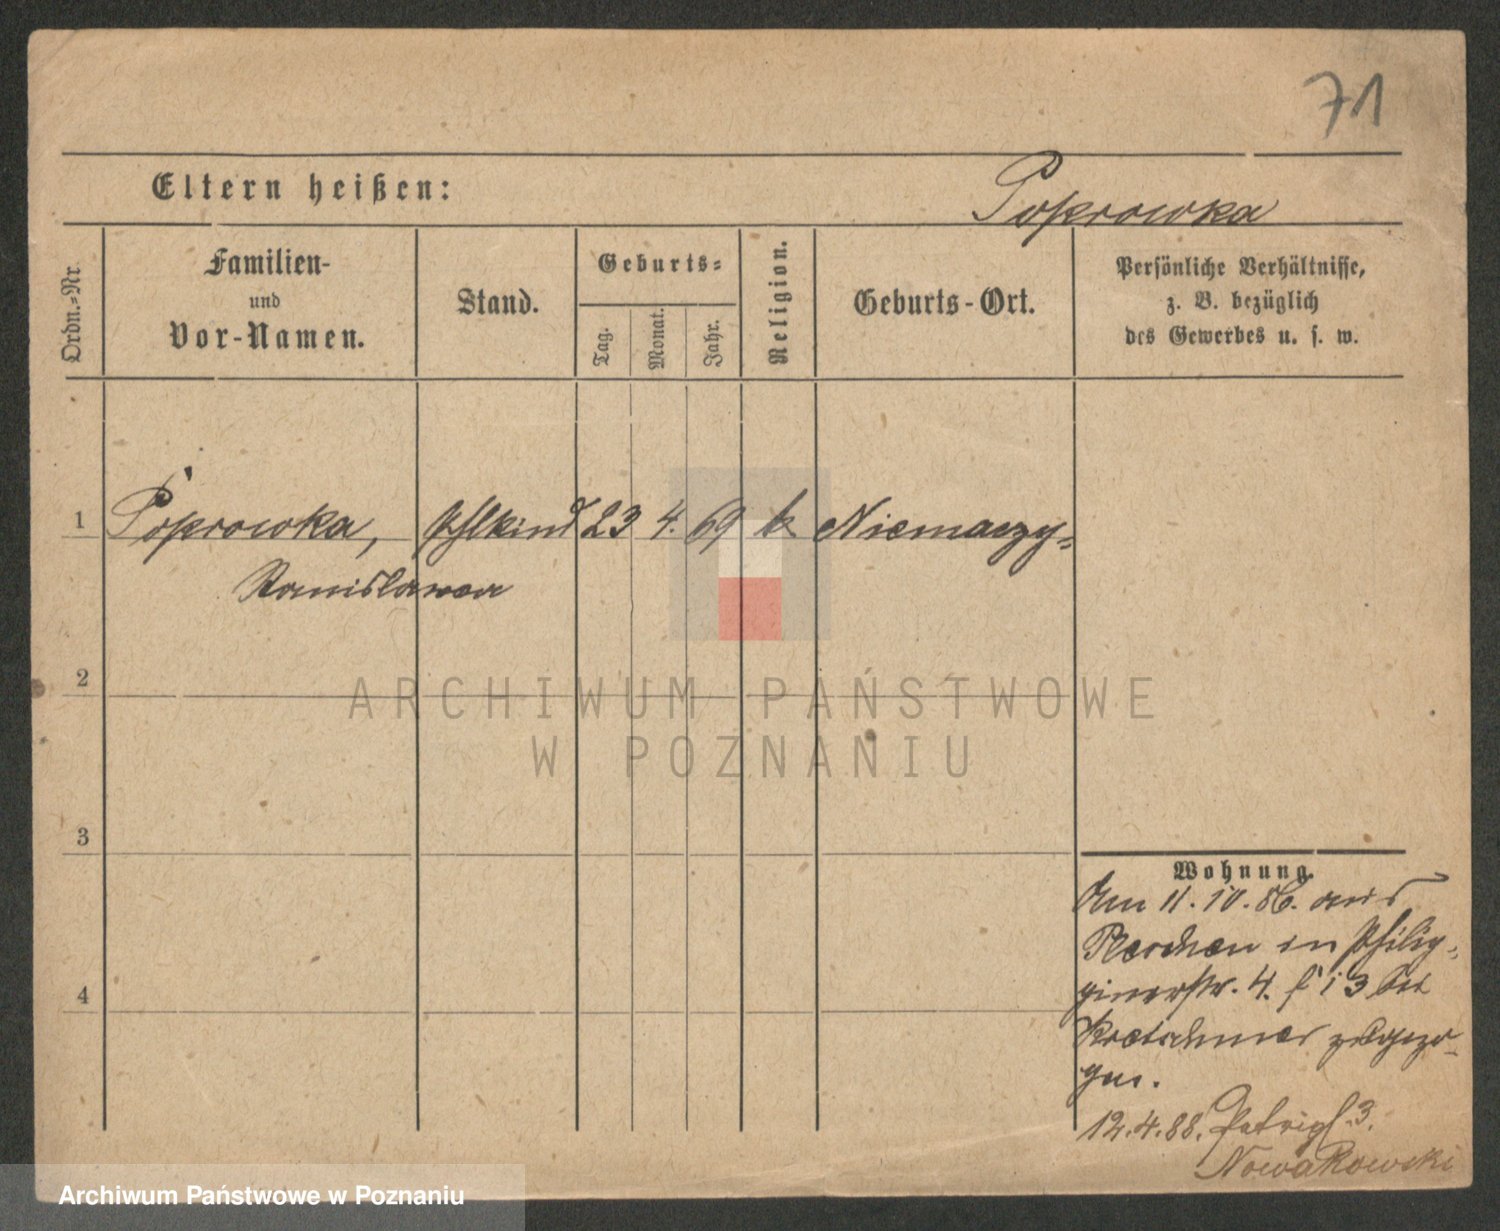 71
Eltern heißen:
Poprowka
Ordn.-Nr.
Familien-
und
Vor-Namen.
Stand.
Geburts-
Tag.
Monat.
Jahr.
Religion.
Geburts-Ort.
Persönliche Verhältnisse,
z. B. bezüglich
des Gewerbes u. s. w.
1 Poprowka, 23 4. 69 k Niemaczy-
Stanislawa
2
ARCHIWUM PAŃSTWOWE
W POZNANIU
3
4
Wohnung.
Am 11.10.86. aus
Pleschen in
4. 13 bei
Kretschmer zugezo-
gen.
12.4.88. 3.
Nowakowski
Archiwum Państwowe w Poznaniu